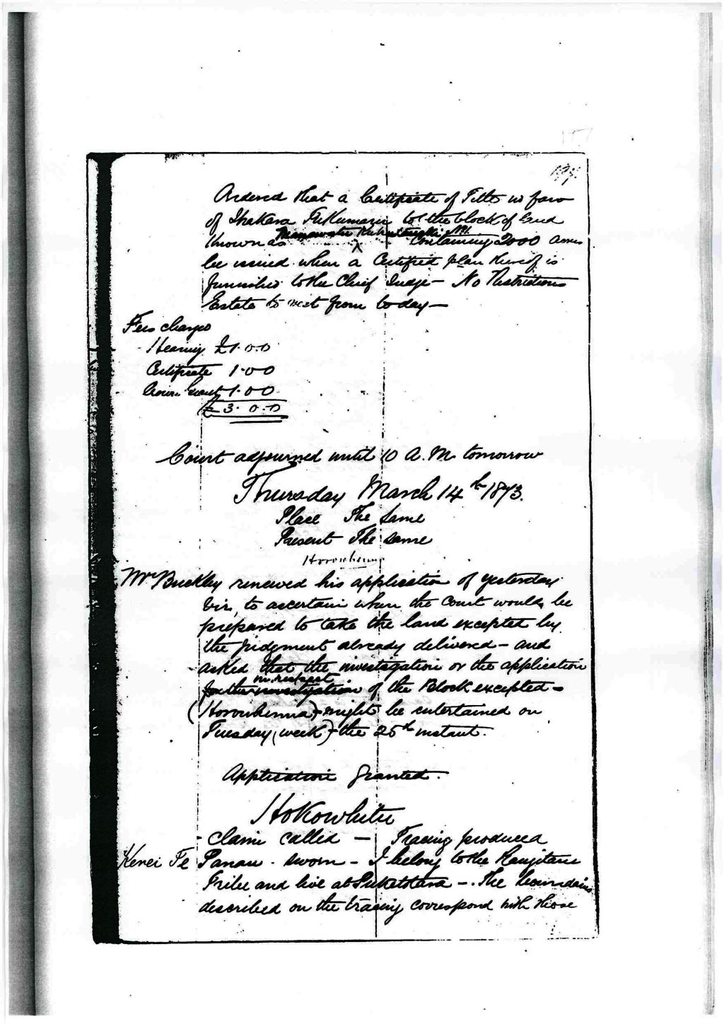 Ordered that a Certificate of Title in favor
of Ihakara Tukumaru to the block of land
known as Manawatu Kukutauaki containing 2000 acres
be issued when a Certified plan thereof is
furnished to the Chief Judge - No Restrictions
Estate to vest from today -
Fees charged
Hearing £1.0.0
Certificate 1.0.0
Crown Grant 1.0.0
£3.0.0
Court adjourned until 10 A.M. tomorrow
Thursday March 14th 1873.
Place The Same
Present The same
Horowhenua
Mr Buckley renewed his application of yesterday
viz, to ascertain when the Court would be
prepared to take the land excepted by
the judgment already delivered - and
asked that the investigation or the application
in respect
of the Block excepted -
(Horowhenua) - might be entertained on
Tuesday (week) - the 25th instant.
Application Granted.
Hokowhitu
Claim called - Tracing produced
Kerei Te Panau - sworn - I belong to the Rangitane
Tribe and live at Puketotara - The boundaries
described on the tracing correspond with those